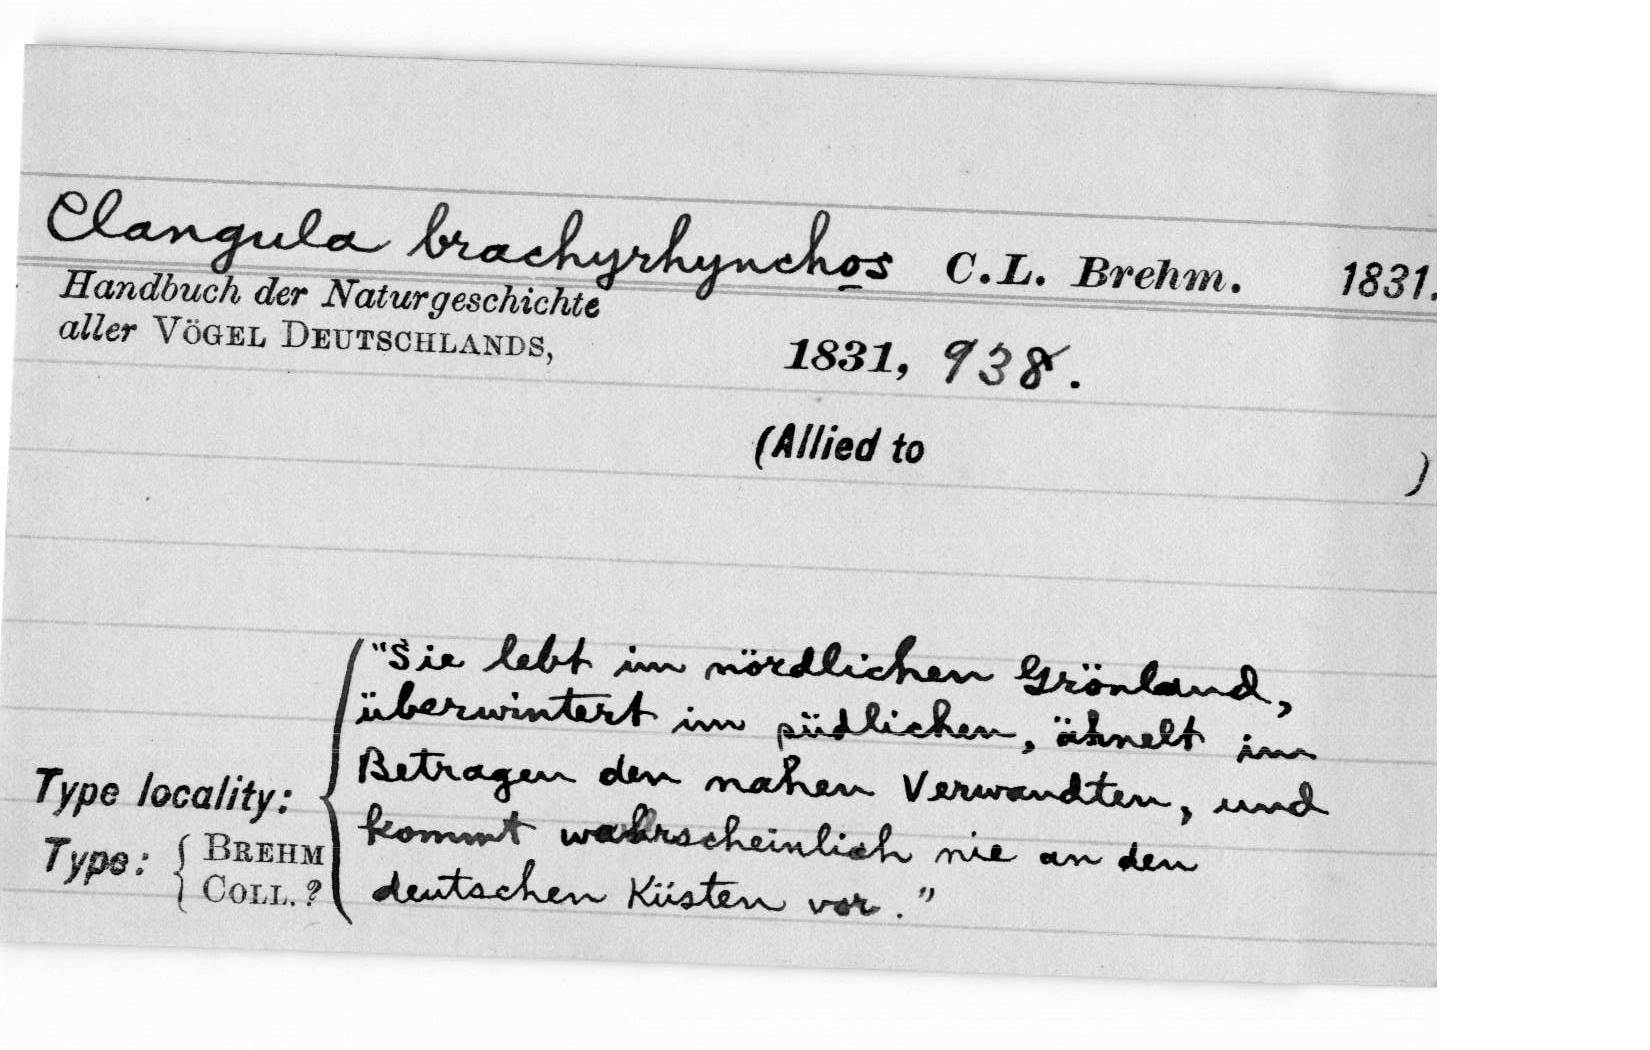 Clangula brachyrhynchos C.L. Brehm. 1831.
Handbuch der Naturgeschichte
aller VÖGEL DEUTSCHLANDS,
1831, 938.
(Allied to )
"Sie lebt im nördlichen Grönland,
überwintert im südlichen, ähnelt im
Betragen den nahen Verwandten, und
kommt wahrscheinlich nie an den
deutschen Küsten vor."
Type locality:
Type: { BREHM
COLL. ?